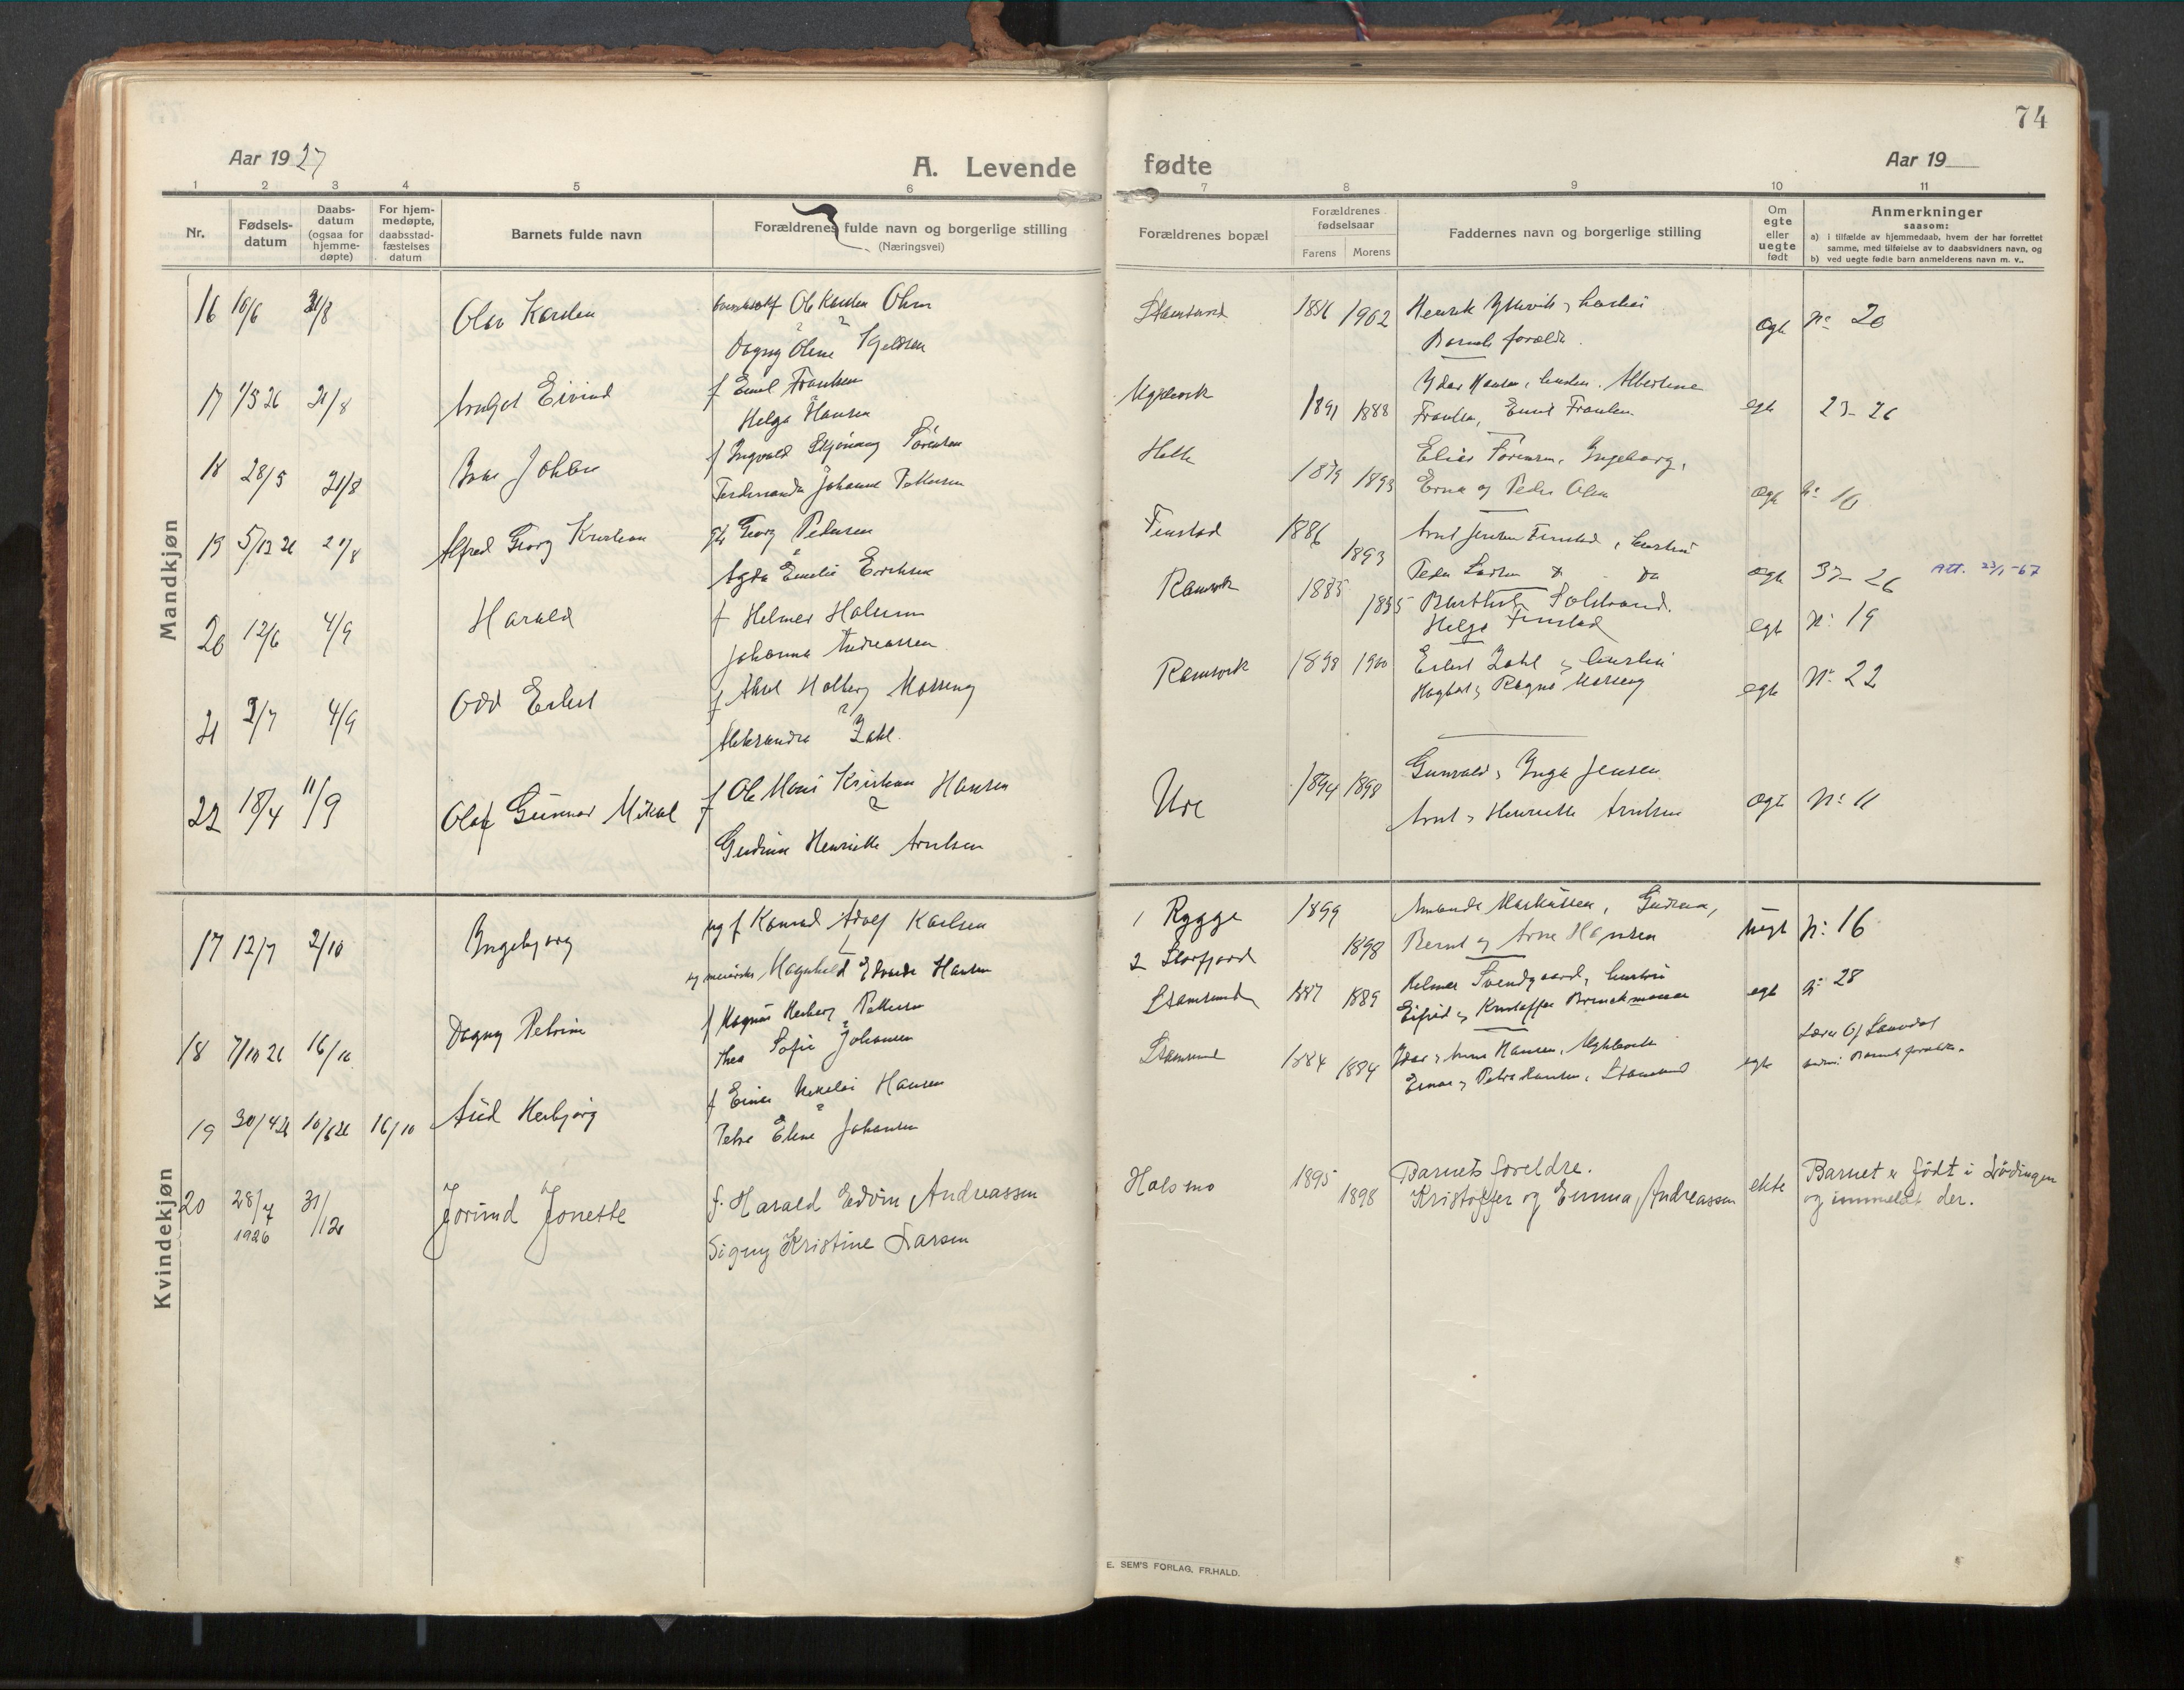 74
Aar 1927
A. Levende fødte
Aar 19
1 2 3 4 5 6 7 8 9 10 11
Nr.
Fødsels-
datum
Daabs-
datum
(ogsaa for
hjemme-
døpte)
For hjem-
medøpte,
daabsstad-
fæstelses
datum
Barnets fulde navn
Forældrenes fulde navn og borgerlige stilling
(Næringsvei)
Forældrenes bopæl
Forældrenes
fødselsaar
Farens Morens
Faddernes navn og borgerlige stilling
Om
egte
eller
uegte
født
Anmerkninger
saasom:
a) i tilfælde av hjemmedaab, hvem der har forrettet
samme, med tilføielse av to daabsvidners navn, og
b) ved uegte fødte barn anmelderens navn m. v..
Mandkjøn
16 10/6 21/8 Olav Karsten Ole Karsten Olsen Stamsund 1902 Henrik
Dagny Oline Kjeldsen Barnets foreldre. egte No 20
17 1/5 26 21/8 Eivind f Emil Frantsen 1891 1888 Ydar Hansen, Albertine
Helga Hansen Frantsen, Emil Frantsen egte 23-26
18 28/5 21/8 f Ingvald Sørensen Holle 1879 1893 Elias Sørensen, Ingeborg,
Ferdinanda Johanne Pettersen Erna og Peder Olsen egte No 10
19 5/12 26 21/8 Alfred Georg Kristian Georg Pedersen Finstad 1886 1893 Arnt Jensen Finstad, hustru
Agda Emelie Eriksen Peder Larsen egte 37-26 Att. 23/1-67
20 12/6 4/9 Harald f Helmer Halsen Ramsvik 1885 Solstrand.
Johanna Andreassen Helga Finstad egte No 19
21 2/7 4/9 Odd Erlest f Aksel Holberg Mosseng Ramsvik 1898 1900 Zahl hustru
Aleksandra Zahl. Hagbart, Ragna Mosseng egte No 22
22 18/4 11/9 Olaf Gunnar Mikal f Ole Kristian Hansen Ure 1894 1898 Gunvald, Inga Jensen
Gudrun Henriette Arntsen Arnt, Henriette Arntsen egte No 11
Kvindekjøn
17 12/7 2/10 Ingebjørg ug f Konrad Adolf Karlsen 1 Rygge 1899 Amanda Markussen, Gudrun,
Magnhild Edvarda Hansen 2 Storfjord 1898 Bernt og Arne Hansen uegt No 16
18 7/10 26 16/10 Dagny Petrine f Magnus Herberg Pettersen Stamsund 1887 1889 Helmer Svendgaard, hustru
Thea Sofie Johansen Eifrid, Kristoffer Brinchmann egte No 28
19 30/4 26 10/6 26 16/10 Aud Herbjørg f Einar Nikolai Hansen Stamsund 1884 1884 Ydar, Anna Hansen,
Petra Eline Johansen Einar, Petra Hansen, Stamsund egte Lærer
Barnets foreldre.
20 28/7 1926 31/12 Jorund Jonette f. Harald Edvin Andreassen Holsmo 1895 Barnets foreldre. ekte Barnet er født i Lødingen
Signy Kristine Larsen 1898 Kristoffer og Emma Andreassen og innmeldt der.
E. SEM'S FORLAG, FR.HALD.